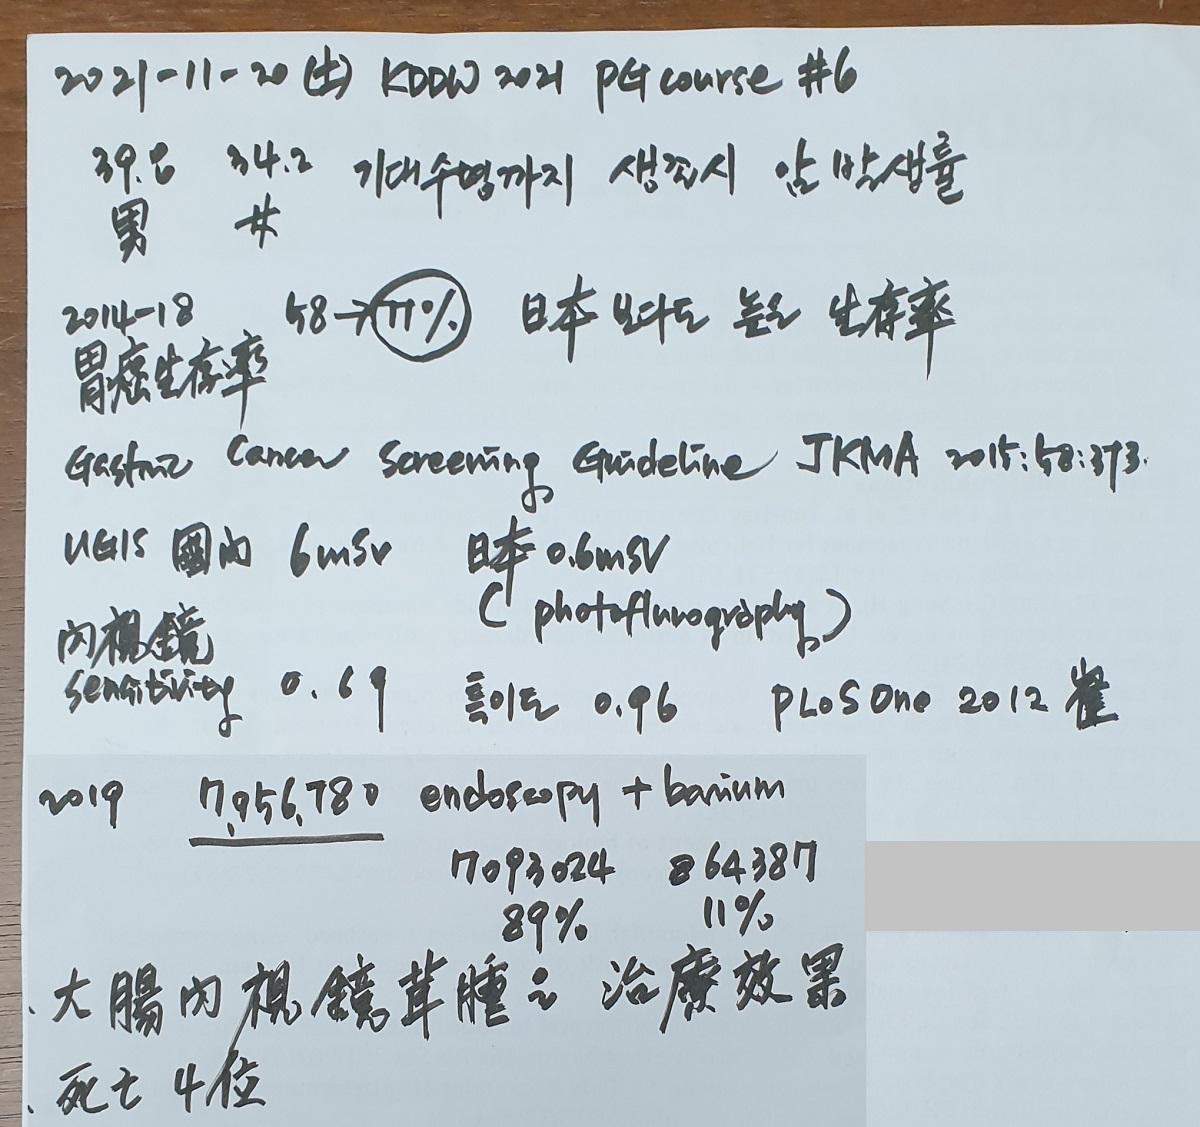 2021-11-20(土) KDDW 2021 PG course #6
39.8 34.2 기대수명까지 생존시 암 발생률
男 女
2014-18 58→77% 日本 보다도 높은 生存率
胃癌生存率
Gastric Cancer Screening Guideline JKMA 2015:58:373.
UGIS 國內 6mSv 日本 0.6mSV
(photofluorography)
內視鏡
sensitivity 0.69 특이도 0.96 PLoS One 2012 崔
2019 7,956,780 endoscopy + barium
7093024 864387
89% 11%
. 大腸內視鏡茸腫之 治療效果
. 死亡 4位